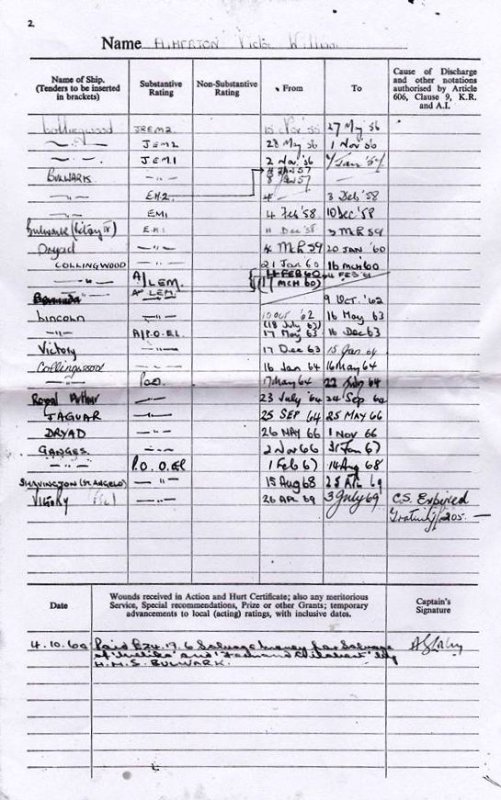 2.
Name Victor William
Name of Ship. (Tenders to be inserted in brackets) Substantive Rating Non-Substantive Rating From To Cause of Discharge and other notations authorised by Article 606, Clause 9, K.R. and A.I.
Collingwood JREM2 27 May '56
—"— JEM2 28 May 56 1 Nov 56
—"— JEM1 2 Nov. '56
BULWARK —"—
—"— EM2 4 — 3 Feb '58
—"— EM1 4 Feb '58 10 Dec '58
Bulwark EM1 11 Dec '58 3 MR 59
Dryad —"— 4 MR 59 20 JAN '60
COLLINGWOOD —"— 21 Jan 60 16 MCH 60
—"— A/LEM 14 FEB 60
A/LEM (17 MCH 60)
Bermuda 9 Oct. '62
LINCOLN —"— 10 Oct '62 16 May 63
—"— A/P.O.El (18 July 63) 17 May 63 16 Dec 63
Victory —"— 17 Dec 63 15 Jan 64
Collingwood —"— 16 Jan 64 16 May 64
—"— 17 May 64 22 64
Royal Arthur —"— 23 July '64 24 Sep 64
JAGUAR —"— 25 SEP 64 25 MAY 66
DRYAD —"— 26 MAY 66 1 Nov 66
GANGES —"— 2 Nov 66 31 Jan 67
—"— P.O.O.El 1 Feb 67 14 Aug 68
(ST. ANGELO) —"— 15 Aug 68 25 69
VICTORY —"— 26 APL 69 3 July 69 C.S. Expired
Gratuity £205. —
Date Wounds received in Action and Hurt Certificate; also any meritorious Service, Special recommendations, Prize or other Grants; temporary advancements to local (acting) ratings, with inclusive dates. Captain's Signature
4.10.60 Paid £24.17.6 Salvage money for Salvage
of and by
H.M.S. BULWARK.